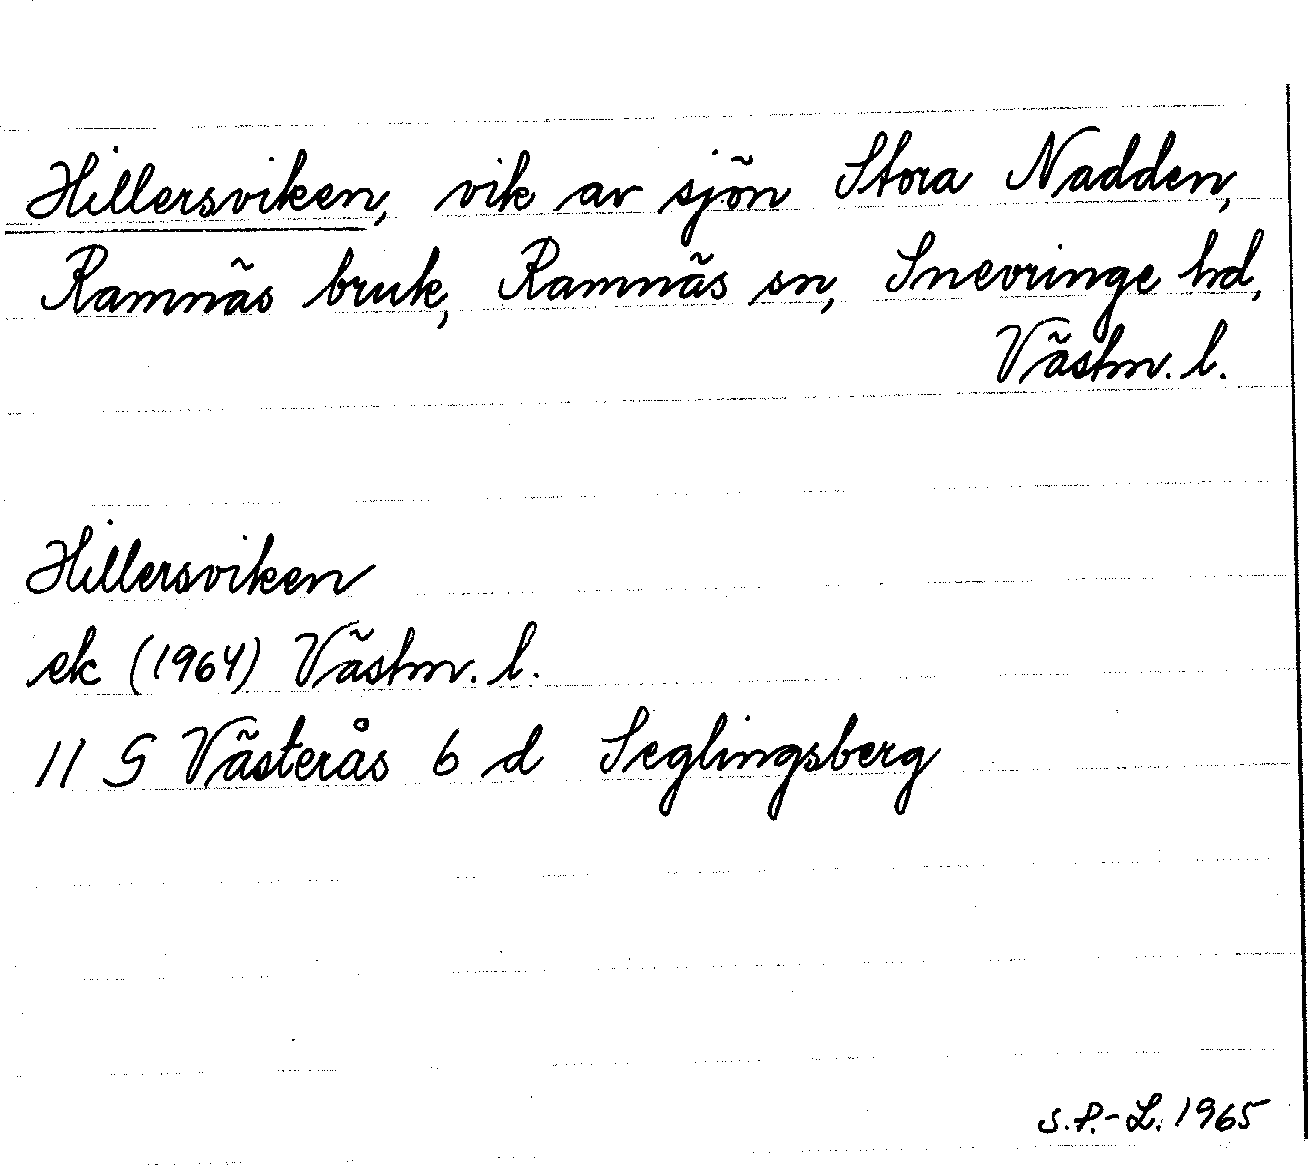 Hillersviken, vik av sjön Stora Nadden,
Ramnäs bruk, Ramnäs sn, Snevringe hd,
Västm. l.
Hillersviken
ek (1964) Västm. l.
11 G Västerås 6 d Seglingsberg
S.P.-L. 1965